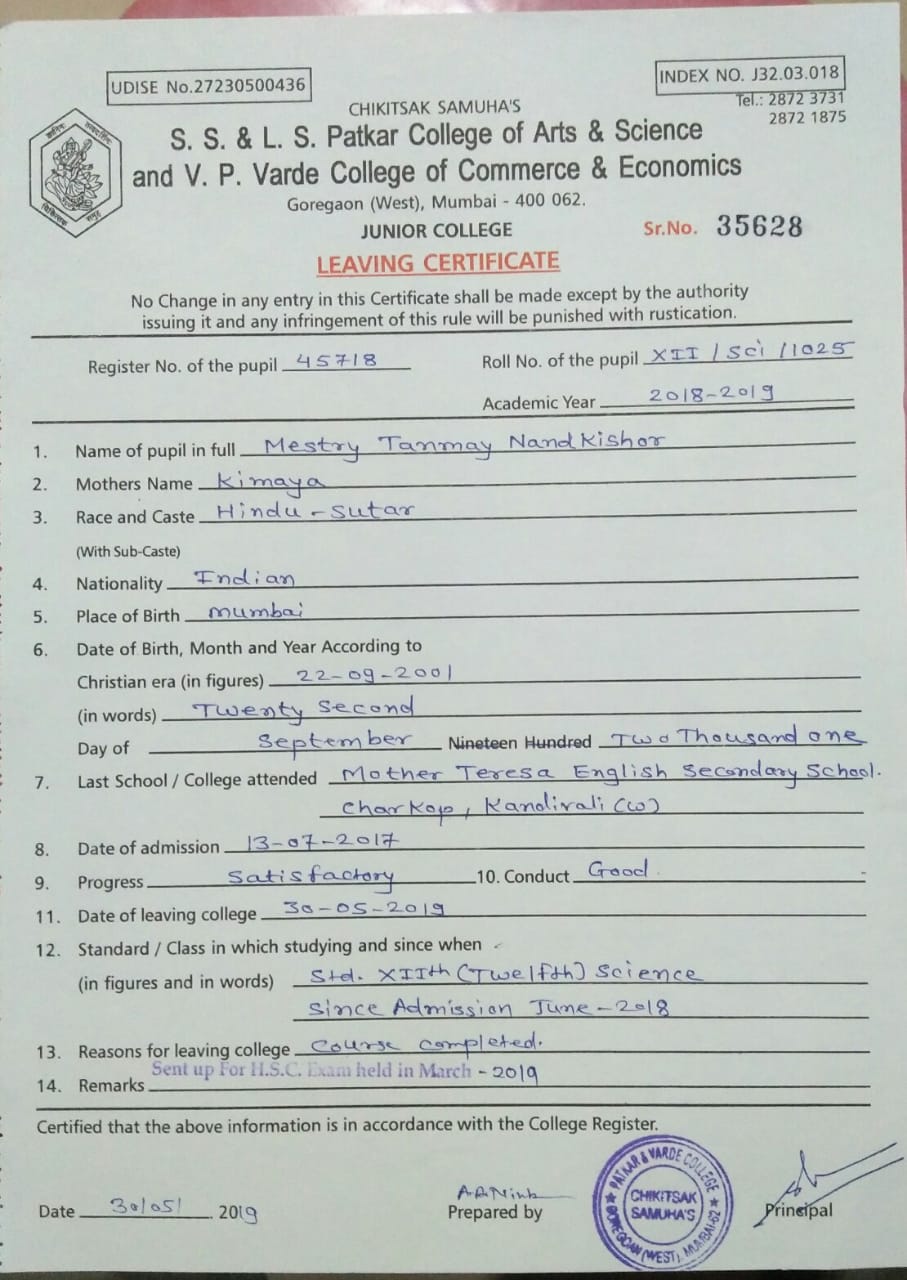 UDISE No.27230500436
INDEX NO. J32.03.018
Tel.: 2872 3731
2872 1875
CHIKITSAK SAMUHA'S
S. S. & L. S. Patkar College of Arts & Science
and V. P. Varde College of Commerce & Economics
Goregaon (West), Mumbai - 400 062.
JUNIOR COLLEGE
Sr.No. 35628
LEAVING CERTIFICATE
No Change in any entry in this Certificate shall be made except by the authority
issuing it and any infringement of this rule will be punished with rustication.
Register No. of the pupil 45718
Roll No. of the pupil XII / Sci / 1025
Academic Year 2018-2019
1. Name of pupil in full Mestry Tanmay Nandkishor
2. Mothers Name Kimaya
3. Race and Caste Hindu - Sutar
(With Sub-Caste)
4. Nationality Indian
5. Place of Birth mumbai
6. Date of Birth, Month and Year According to
Christian era (in figures) 22-09-2001
(in words) Twenty Second
Day of September Nineteen Hundred Two Thousand one
7. Last School / College attended Mother Teresa English Secondary School.
Charkop, Kandivali (W)
8. Date of admission 13-07-2017
9. Progress Satisfactory 10. Conduct Good
11. Date of leaving college 30-05-2019
12. Standard / Class in which studying and since when
(in figures and in words) Std. XIIth (Twelfth) Science
Since Admission June-2018
13. Reasons for leaving college Course completed.
Sent up For H.S.C. Exam held in March - 2019
14. Remarks
Certified that the above information is in accordance with the College Register.
Date 30/05/ 2019
Prepared by
PATKAR & VARDE COLLEGE
CHIKITSAK
SAMUHA'S
GOREGOAN (WEST), MUMBAI-62
Principal